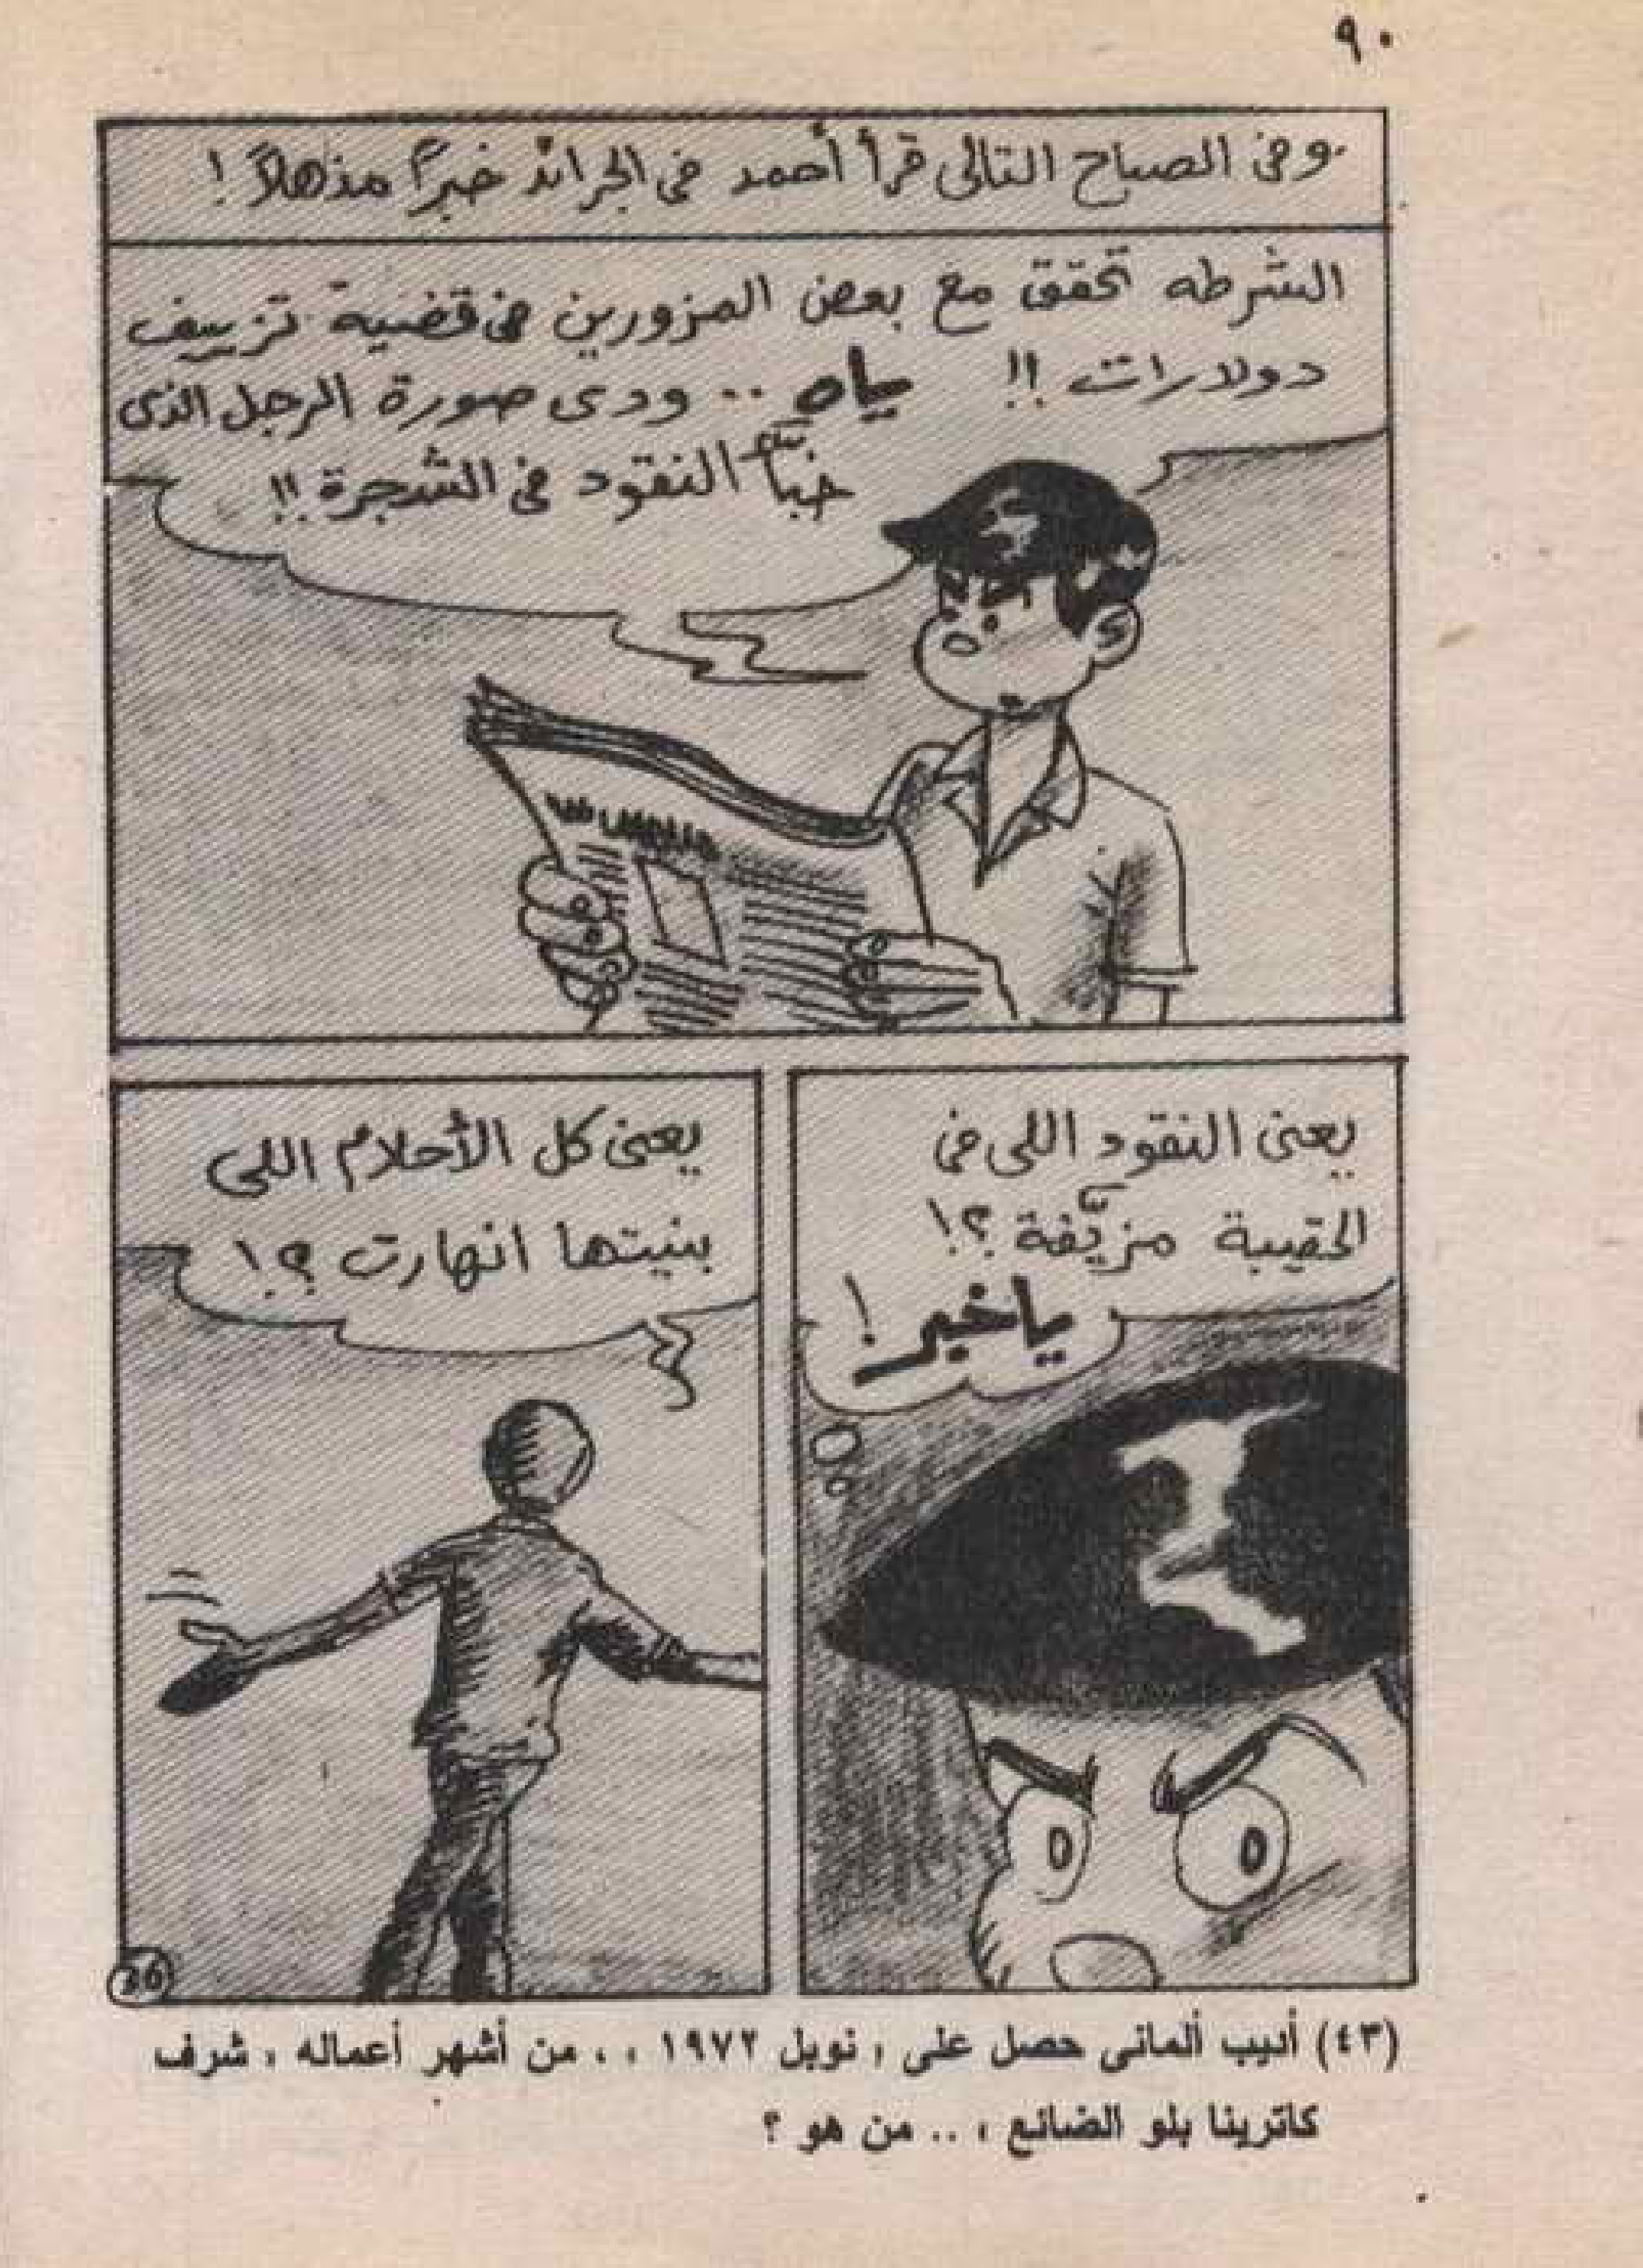 ٩٠
وفى الصباح التالى قرأ أحمد فى الجرائد خبراً مذهلاً !
الشرطه تحقق مع بعض المزورين فى قضية تزييف
دولارات !! ياه .. ودى صورة الرجل الذى
خبّأ النقود فى الشجرة !!
يعنى النقود اللى فى
الحقيبة مزيّفة ؟!
ياخبر !
يعنى كل الأحلام اللى
بنيتها انهارت ؟!
26
(٤٣) أديب ألمانى حصل على « نوبل ١٩٧٢ » ، من أشهر أعماله « شرف
كاترينا بلو الضائع » .. من هو ؟